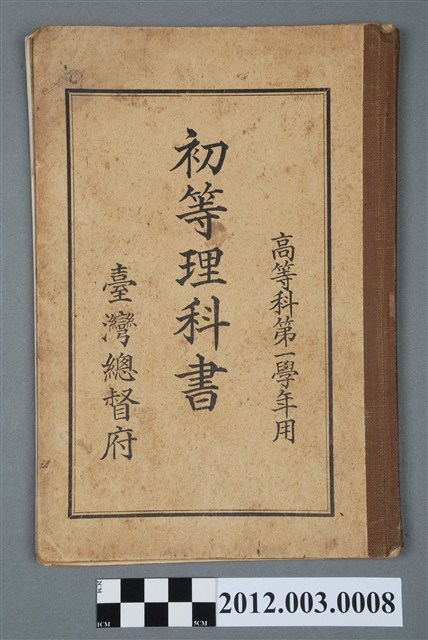 高等科第一學年用
初等理科書
臺灣總督府
2CM
1CM
5CM
2012.003.0008